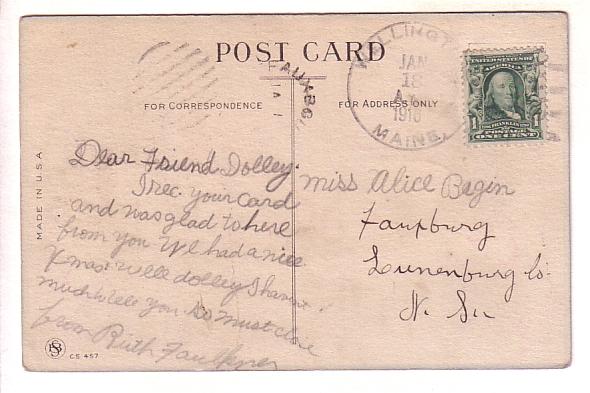 POST CARD
WELLINGT
JAN
18
A
1910
MAINE.
UNITED STATES OF AMERICA
1 FRANKLIN 1
POSTAGE
ONE CENT
FAUXBG.
FOR CORRESPONDENCE
FOR ADDRESS ONLY
MADE IN U.S.A
Dear Friend Dolley.
I rec. your Card
and was glad to here
from you We had a nice
Xmas. Well dolley I havent
much to tell you so must close
from Ruth Faulkner
miss Alice Begin
Fauxburg
Lunenburg Co.
N. Su
CS 457